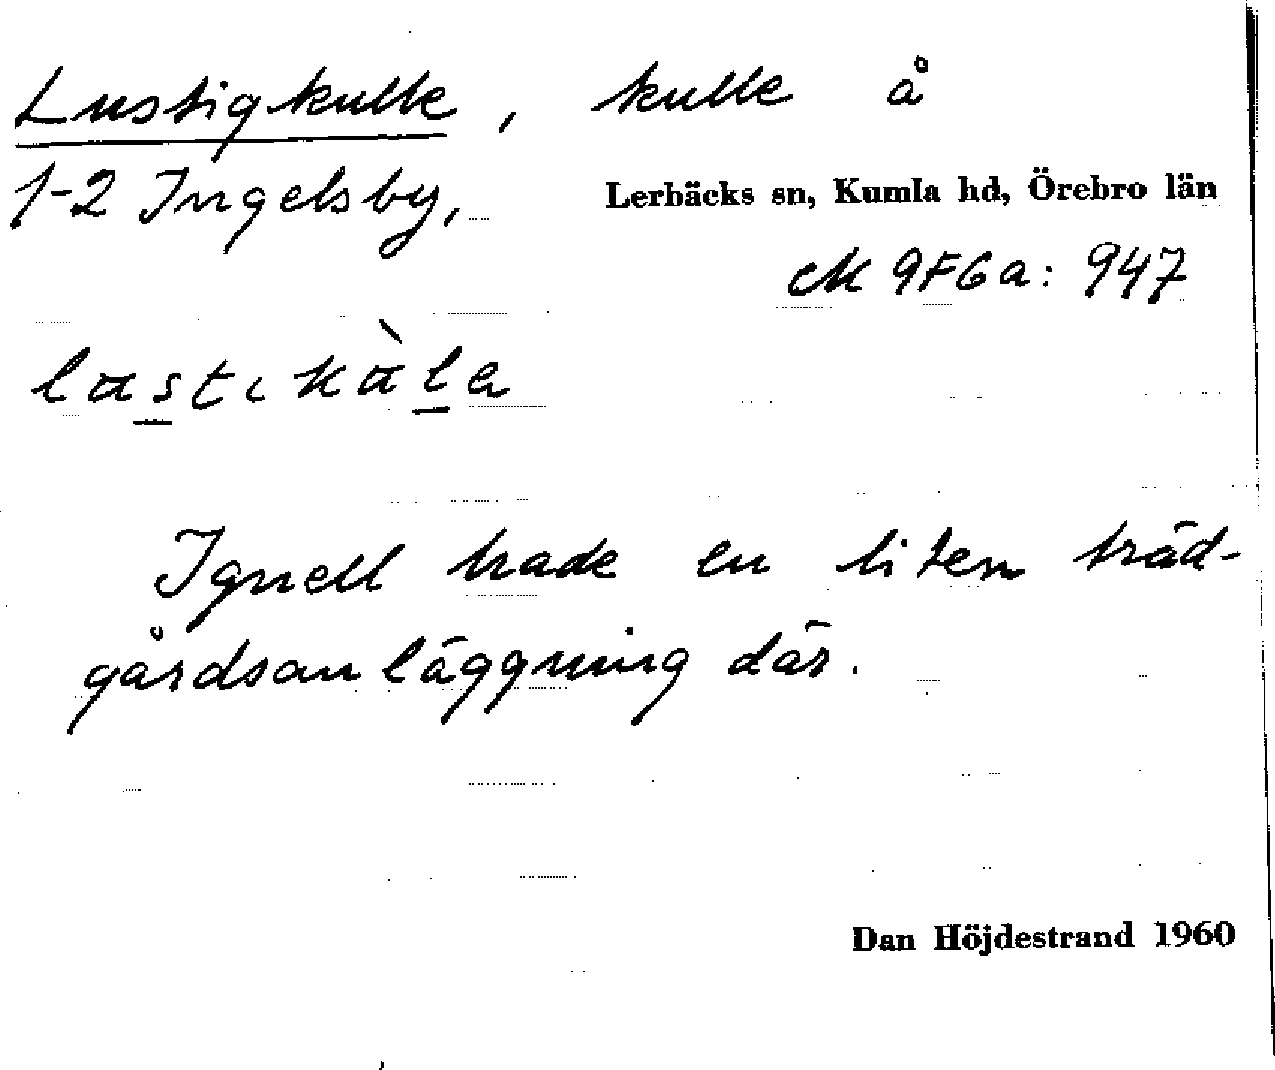 Lustigkulle, kulle å
1-2 Ingelsby,
Lerbäcks sn, Kumla hd, Örebro län
ek 9F6a: 947
Ignell hade en liten träd-
gårdsanläggning där.
Dan Höjdestrand 1960